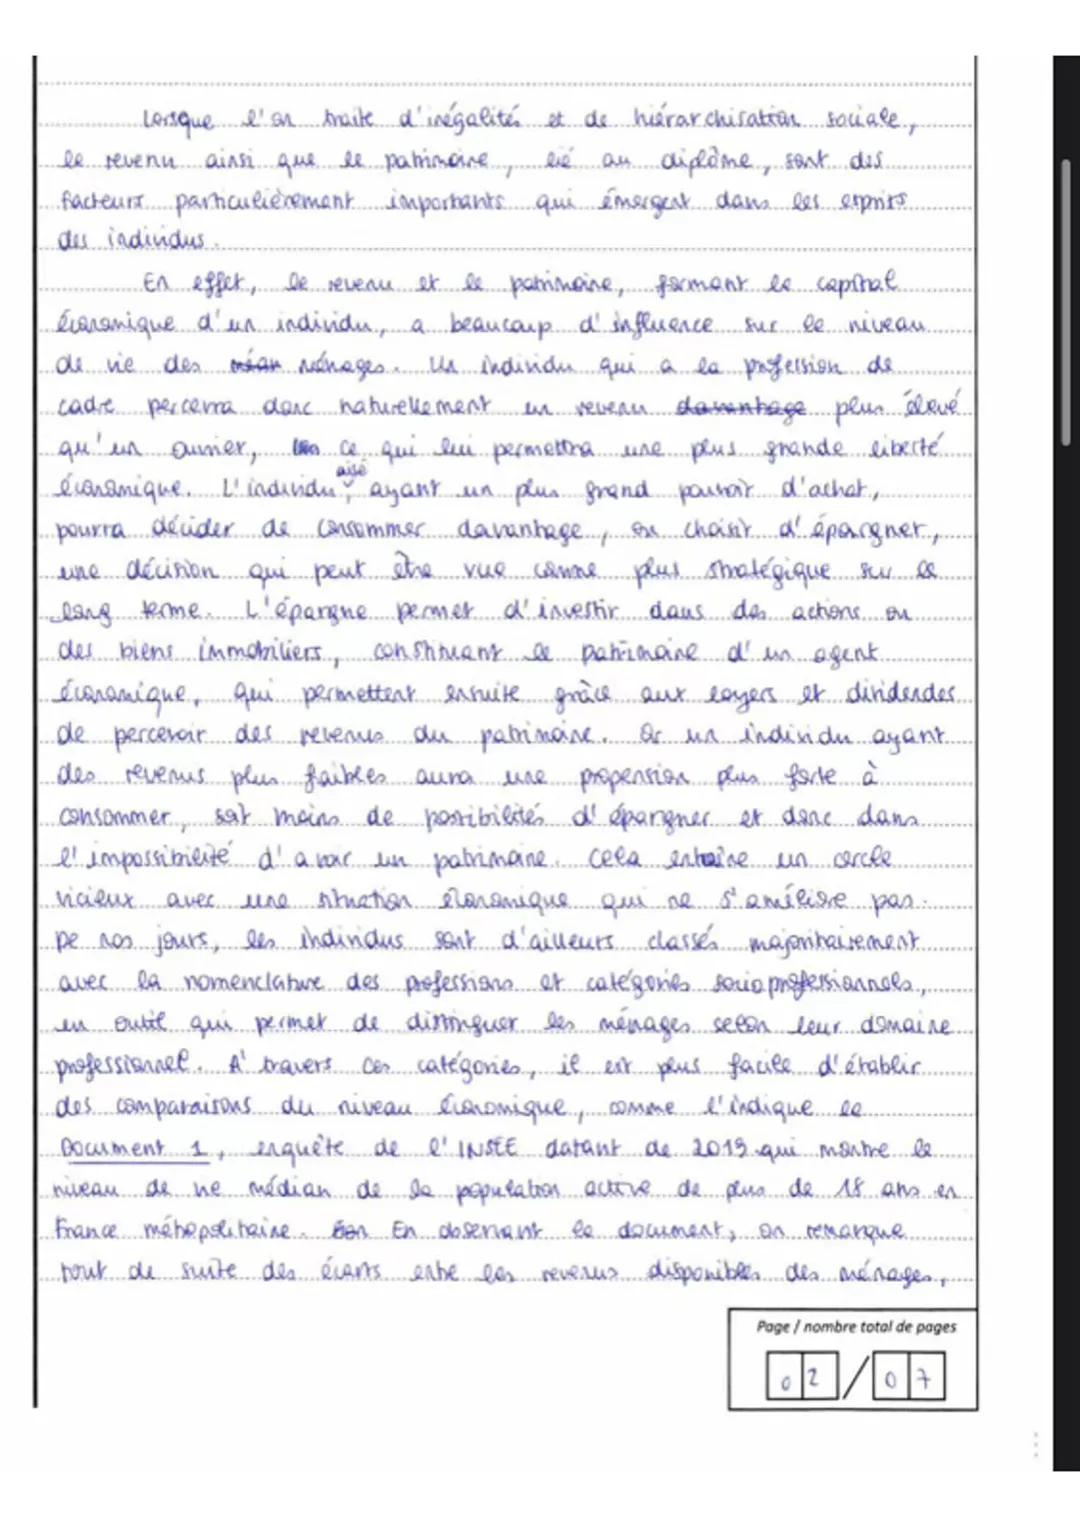 Lorsque l'on traite d'inégalités et de hiérarchisation sociale,
le revenu ainsi que le patrimoine, lié au diplôme, sont des
facteurs particulièrement importants qui émergent dans les esprits
des individus.
En effet, le revenu et le patrimoine, formant le capital
économique d'un individu, a beaucoup d'influence sur le niveau
de vie des ménages. Un individu qui a la profession de
cadre percevra donc naturellement un revenu davantage plus élevé
qu'un ouvrier, ce qui lui permettra une plus grande liberté
économique. L'individu aisé, ayant un plus grand pouvoir d'achat,
pourra décider de consommer davantage, ou choisir d'épargner,
une décision qui peut être vue comme plus stratégique sur le
long terme. L'épargne permet d'investir dans des actions ou
des biens immobiliers, constituant le patrimoine d'un agent
économique, qui permettent ensuite grâce aux loyers et dividendes
de percevoir des revenus du patrimoine. Or un individu ayant
des revenus plus faibles aura une propension plus forte à
consommer, soit moins de possibilités d'épargner et donc dans
l'impossibilité d'avoir un patrimoine. Cela entraîne un cercle
vicieux avec une situation économique qui ne s'améliore pas.
De nos jours, les individus sont d'ailleurs classés majoritairement
avec la nomenclature des professions et catégories socioprofessionnels,
un outil qui permet de distinguer les ménages selon leur domaine
professionnel. A travers ces catégories, il est plus facile d'établir
des comparaisons du niveau économique, comme l'indique le
Document 1, enquête de l'INSEE datant de 2019 qui montre le
niveau de vie médian de la population active de plus de 18 ans en
France métropolitaine. En observant le document, on remarque
tout de suite des écarts entre les revenus disponibles des ménages,
Page / nombre total de pages
02/07